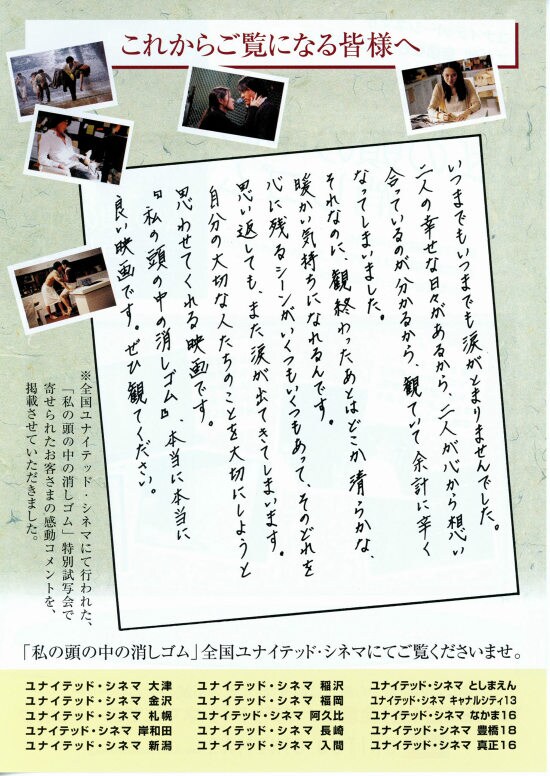 これからご覧になる皆様へ
いつまでもいつまでも涙がとまりませんでした。
二人の幸せな日々があるから、二人が心から想い
合っているのが分かるから、観ていて余計に辛く
なってしまいました。
それなのに、観終わったあとはどこか清らかな、
暖かい気持ちになれるんです。
心に残るシーンがいくつもいくつもあって、そのどれを
思い返しても、また涙が出てきてしまいます。
自分の大切な人たちのことを大切にしようと
思わせてくれる映画です。
『私の頭の中の消しゴム』、本当に本当に
良い映画です。ぜひ観てください。
※全国ユナイテッド・シネマにて行われた、
「私の頭の中の消しゴム」特別試写会で
寄せられたお客さまの感動コメントを、
掲載させていただきました。
「私の頭の中の消しゴム」全国ユナイテッド・シネマにてご覧くださいませ。
ユナイテッド・シネマ 大津
ユナイテッド・シネマ 金沢
ユナイテッド・シネマ 札幌
ユナイテッド・シネマ 岸和田
ユナイテッド・シネマ 新潟
ユナイテッド・シネマ 稲沢
ユナイテッド・シネマ 福岡
ユナイテッド・シネマ 阿久比
ユナイテッド・シネマ 長崎
ユナイテッド・シネマ 入間
ユナイテッド・シネマ としまえん
ユナイテッド・シネマ キャナルシティ13
ユナイテッド・シネマ なかま16
ユナイテッド・シネマ 豊橋18
ユナイテッド・シネマ 真正16